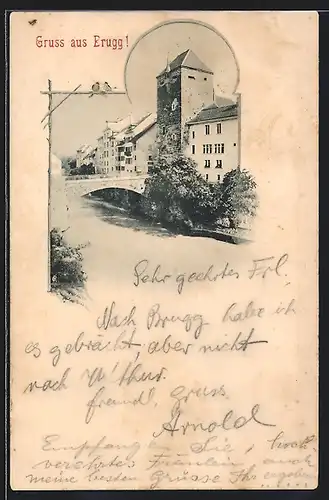 Gruss aus Brugg!
Sehr geehrtes Frl.
Nach Brugg habe ich
es gebracht, aber nicht
nach W'thur.
freundl. Gruss
Arnold
Empfangen Sie, hoch
verehrtes Fräulein auch
meine besten Grüsse Ihr ergeben